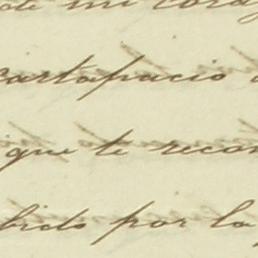 de mi cora
cartapacio
que te recon
bido por la